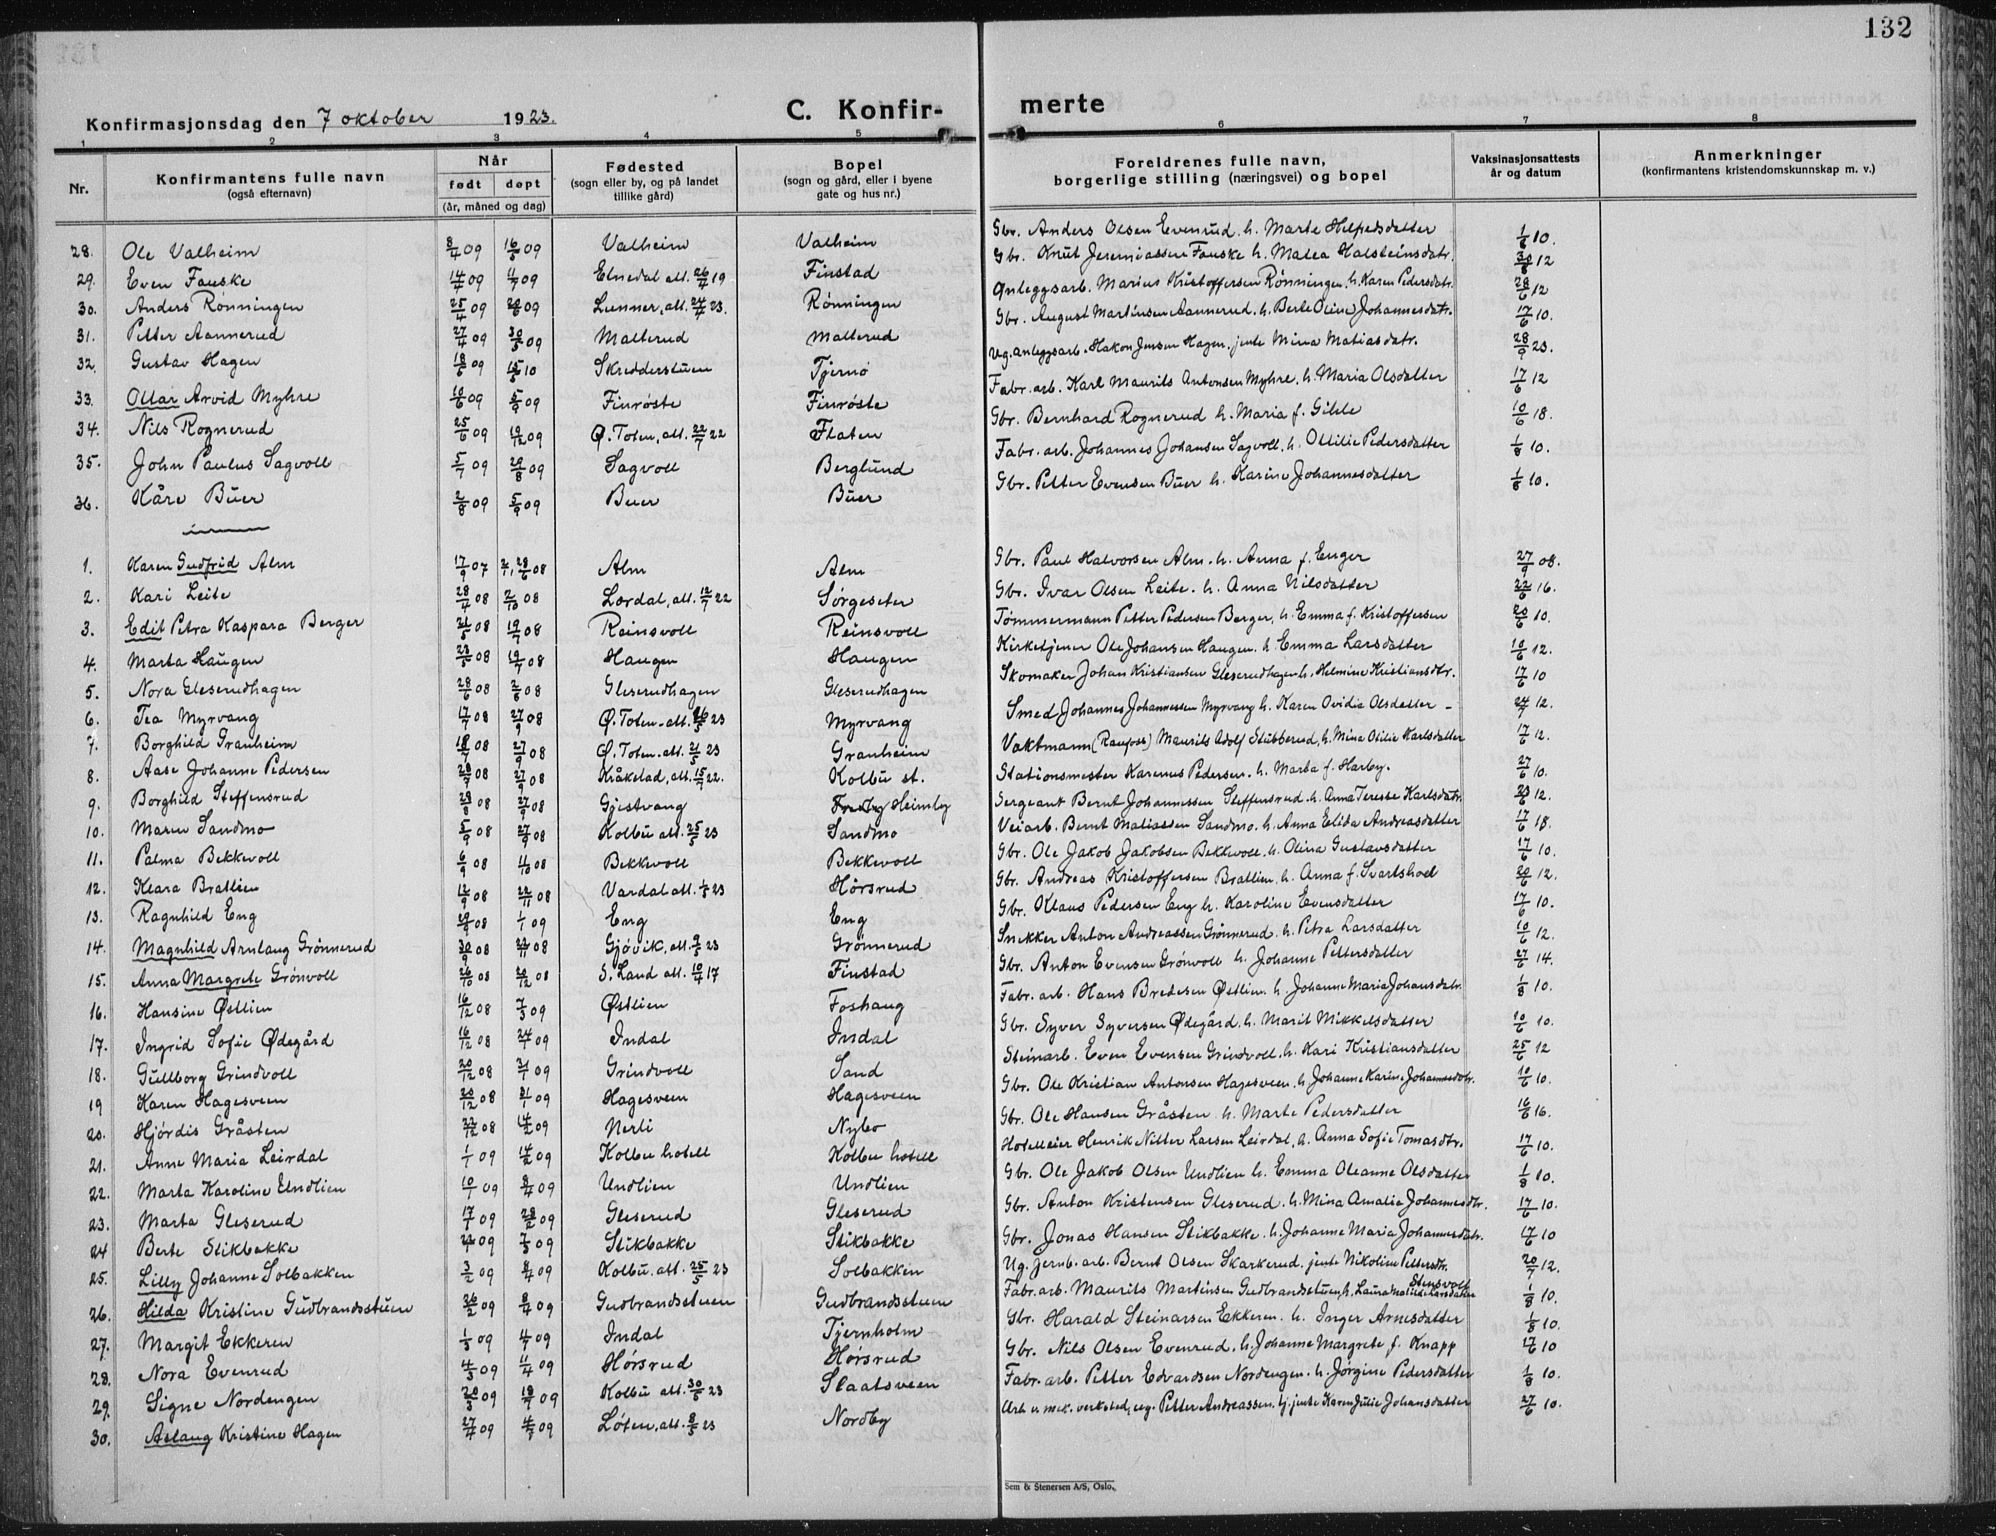 132
Konfirmasjonsdag den 7 oktober 1923.
C. Konfirmerte
1 2 3 4 5 6 7 8
Nr. Konfirmantens fulle navn (også efternavn) Når født døpt (år, måned og dag) Fødested (sogn eller by, og på landet tillike gård) Bopel (sogn og gård, eller i byene gate og hus nr.) Foreldrenes fulle navn, borgerlige stilling (næringsvei) og bopel Vaksinasjonsattests år og datum Anmerkninger (konfirmantens kristendomskunnskap m. v.)
28. Ole Valheim 8/4 09 16/5 09 Valheim Valheim Gbr. Anders Olsen Evenrud h. Marte Helfredsdatter 1/8 10.
29. Even Fauske 14/4 09 11/7 09 Elnedal att. 26/4 19 Finstad Gbr. Knut Jeremiassen Fauske h. Malea Halsteinsdatr. 30/8 12
30. Anders Rønningen 25/4 09 20/6 09 Lunner, att. 24/4 23. Rønningen Anleggsarb. Marius Kristoffersen Rønningen, h. Karen Pedersdatr. 28/6 12
31. Petter Aannerud 27/4 09 30/5 09 Malterud Malterud Gbr. August Martinsen Aannerud. h. Berte Oline Johannesdatr. 17/6 10.
32. Gustav Hagen 18/5 09 15/5 10 Skredderstuen Tjernø Ug. anleggsarb. Hakon Jensen Hagen, jente Mina Matiasdatr. 28/9 23.
33. Ottar Arvid Myhre 10/6 09 5/9 09 Finrøste Finrøste Fabr. arb. Karl Maurits Antonsen Myhre. h. Maria Olsdatter 17/6 12
34. Nils Rognerud 25/6 09 19/12 09 Ø. Toten, att. 22/7 22 Flaten Gbr. Bernhard Rognerud h. Maria f. Gihle 10/6 18.
35. John Paulus Sagvoll 5/7 09 29/8 09 Sagvoll Berglund Fabr. arb. Johannes Johansen Sagvoll. h. Ottilie Pedersdatter 1/8 10.
36. Kåre Buer 2/8 09 5/9 09 Buer Buer Gbr. Petter Evensen Buer h. Karine Johannesdatter 1/8 10.
1. Karen Gudfrid Alm 17/9 07 2/1, 28/6 08 Alm Alm Gbr. Paul Halvorsen Alm. h. Anna f. Enger 27/9 08.
2. Kari Leite 28/4 08 2/10 08 Lærdal, att. 12/7 22 Sørgeseter Gbr. Ivar Olsen Leite. h. Anna Nilsdatter 22/6 16.
3. Edit Petra Kaspara Berger 21/5 08 19/7 08 Reinsvoll Reinsvoll Tømmermann Petter Pedersen Berger, h. Emma f. Kristoffersen 20/6 10.
4. Marta Haugen 23/5 08 19/7 08 Haugen Haugen Kirketjener Ole Johansen Haugen. h. Emma Larsdatter 10/6 12.
5. Nora Gleserudhagen 28/6 08 2/8 08 Gleserudhagen Gleserudhagen Skomaker Johan Kristiansen Gleserudhagen h. Helmine Kristiansdtr. 17/6 10
6. Tea Myrvang 17/7 08 27/9 08 Ø. Toten. att. 26/5 23 Myrvang Smed Johannes Johannessen Myrvang h. Karen Ovidia Olsdatter - 24/7 12.
7. Borghild Granheim 18/7 08 27/9 08 Ø. Toten. att. 21/5 23 Granheim Vaktmann (Raufoss) Maurits Adolf Stubberud, h. Mina Otilie Karlsdatter 17/6 12.
8. Aase Johanne Pedersen 28/7 08 27/9 08 Kråkstad, att. 15/9 22. Kolbu st. Stationsmester Karenus Pedersen. h. Marta f. Harby. 27/6 10.
9. Borghild Steffensrud 29/8 08 27/9 08 Gjestvang Heimly Sergeant Bernt Johannessen Steffensrud. h. Anna Terese Karlsdatr. 23/6 12.
10. Maren Sandmo 5/9 08 27/9 08 Kolbu att. 25/5 23 Sandmo Veiarb. Bernt Matiassen Sandmo. h. Anna Elida Andreasdatter 17/6 18.
11. Palma Bekkevoll 6/9 08 11/10 08 Bekkevoll Bekkevoll Gbr. Ole Jakob Jakobsen Bekkevoll. h. Olina Gustavsdatter 17/6 10.
12. Klara Bratlien 12/9 08 22/11 08 Vardal att. 1/5 23 Hørsrud Gbr. Andreas Kristoffersen Bratlien. h. Anna f. Svartshol 20/6 12.
13. Ragnhild Eng 29/9 08 1/1 09 Eng Eng Gbr. Klaus Pedersen Eng h. Karoline Evensdatter 17/6 10.
14. Magnhild Arnlaug Grønnerud 30/9 08 22/11 08 Gjøvik, att. 9/5 23 Grønnerud Snekker Anton Andreassen Grønnerud. h. Petra Larsdatter 10/6 12.
15. Anna Margrete Grønvoll 26/10 08 20/12 08 S. Land att. 10/4 17 Finstad Gbr. Anton Evensen Grønvoll h. Johanne Pettersdatter 27/6 14.
16. Hansine Østlien 16/12 08 7/3 09 Østlien Foshaug Fabr. arb. Hans Bredesen Østlien. h. Johanne Maria Johansdatr. 1/8 10.
17. Ingrid Sofie Ødegård 16/12 08 24/1 09 Indal Indal Gbr. Syver Syversen Ødegård. h. Marit Mikkelsdatter 10/6 10.
18. Gullborg Grindvoll 20/12 08 31/1 09 Grindvoll Sand Steinarb. Even Evensen Grindvoll. h. Kari Kristiansdatter 25/6 12
19 Karen Hagesveen 20/12 08 31/1 09 Hagesveen Hagesveen Gbr. Ole Kristian Antonsen Hagesveen. h. Johanne Karine Johannesdtr. 10/6 10.
20. Hjørdis Gråsten 22/12 08 14/2 09 Nerli Nybo Gbr. Ole Hansen Gråsten. h. Marte Pedersdatter 16/6 16.
21. Anne Maria Leirdal 1/1 09 14/2 09 Kolbu hotell Kolbu hotell Hotelleier Henrik Nitter Larsen Leirdal, h. Anna Sofie Tomasdtr. 17/6 10.
22. Marta Karoline Undlien 10/1 09 8/4 09 Undlien Undlien Gbr. Ole Jakob Olsen Undlien h. Emma Oleanne Olsdatter 1/8 10.
23. Marta Gleserud 17/1 09 28/2 09 Gleserud Gleserud Gbr. Anton Kristensen Gleserud. h. Mina Amalie Johannesdtr. 17/6 10.
24 Berte Stikbakke 24/1 09 7/3 09 Stikbakke Stikbakke Gbr. Jonas Hansen Stikbakke. h. Johanne Maria Johannesdatr. 17/6 10
25. Lilly Johanne Solbakken 3/2 09 8/4 09 Kolbu. att. 25/5 23 Solbakken Ug. jernb. arb. Bernt Olsen Skarkerud. jente Nikoline Pettersdtr. Stensvoll 20/7 12.
26. Hilda Kristine Gudbrandsstuen 26/2 09 8/4 09 Gudbrandsstuen Gudbrandsstuen Fabr. arb. Maurits Martinsen Gudbrandsstuen, h. Laura Matilde Larsdatter 1/8 10.
27. Margit Ekkeren 1/3 09 4/7 09 Indal Tjernholm Gbr. Harald Steinarsen Ekkeren. h. Inger Arnesdatter 1/8 10.
28. Nora Evenrud 4/3 09 11/4 09 Hørsrud Hørsrud Gbr. Nils Olsen Evenrud. h. Johanne Margrete f. Knapp 17/6 10
29. Signe Nordengen 20/3 09 18/7 09 Kolbu att. 30/5 23 Slaatsveen Fabr. arb. Petter Edvardsen Nordengen. h. Jørgine Pedersdatter 1/8 10.
30. Aslaug Kristine Hagen 27/4 09 4/7 09 Løten, att. 8/5 23 Nordby Arb. v. mek. verksted, ug. Petter Andreassen. tj. jente Karen Julie Johansdatter 27/6 10.
Sem & Stenersen A/S, Oslo.